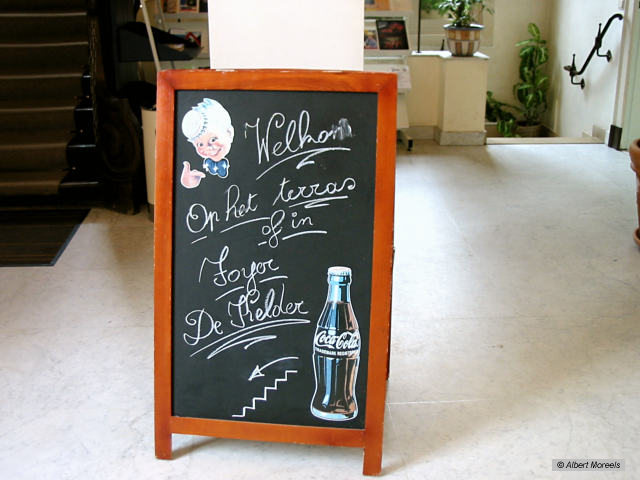 Welkom
Op het terras
of in
Foyer
De Kelder
Coca-Cola
TRADEMARK REGISTERED
© Albert Moreels